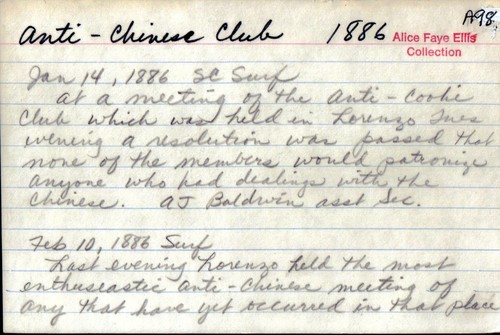 A98
Anti-Chinese Club 1886
Alice Faye Ellis
Collection
Jan 14, 1886 SC Surf
at a meeting of the Anti-Coolie
Club which was held in Lorenzo Tues
evening a resolution was passed that
none of the members would patronize
anyone who had dealings with the
Chinese. AJ Baldwin asst Sec.
Feb 10, 1886 Surf
Last evening Lorenzo held the most
enthusiastic anti-Chinese meeting of
any that have yet occurred in that place